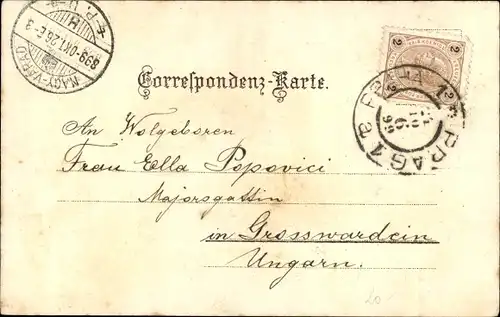 NAGY-VÁRAD
Correspondenz-Karte.
2 2
PRAG 1
An Wolgeboren
Frau Ella Popovici
Majorsgattin
in Grosswardein
Ungarn.
20